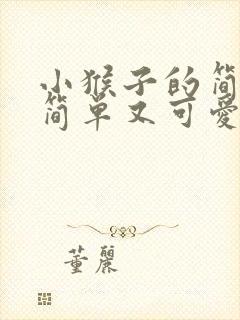 小猴子的简
简单又可爱
董麗